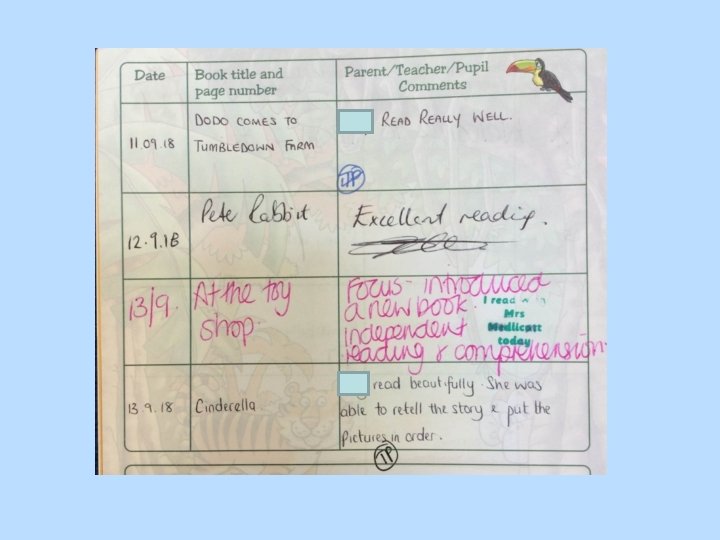 Date
Book title and
page number
Parent/Teacher/Pupil
Comments
11.09.18
DODO COMES TO
TUMBLEDOWN FARM
READ REALLY WELL.
JP
12.9.18
Pete Rabbit
Excellent reading.
13/9.
At the toy
shop.
Focus- introduced
a new book.
independent
reading & comprehension.
I read
Mrs
Medlicott
today
13.9.18
Cinderella
read beautifully. She was
able to retell the story & put the
Pictures in order.
TP